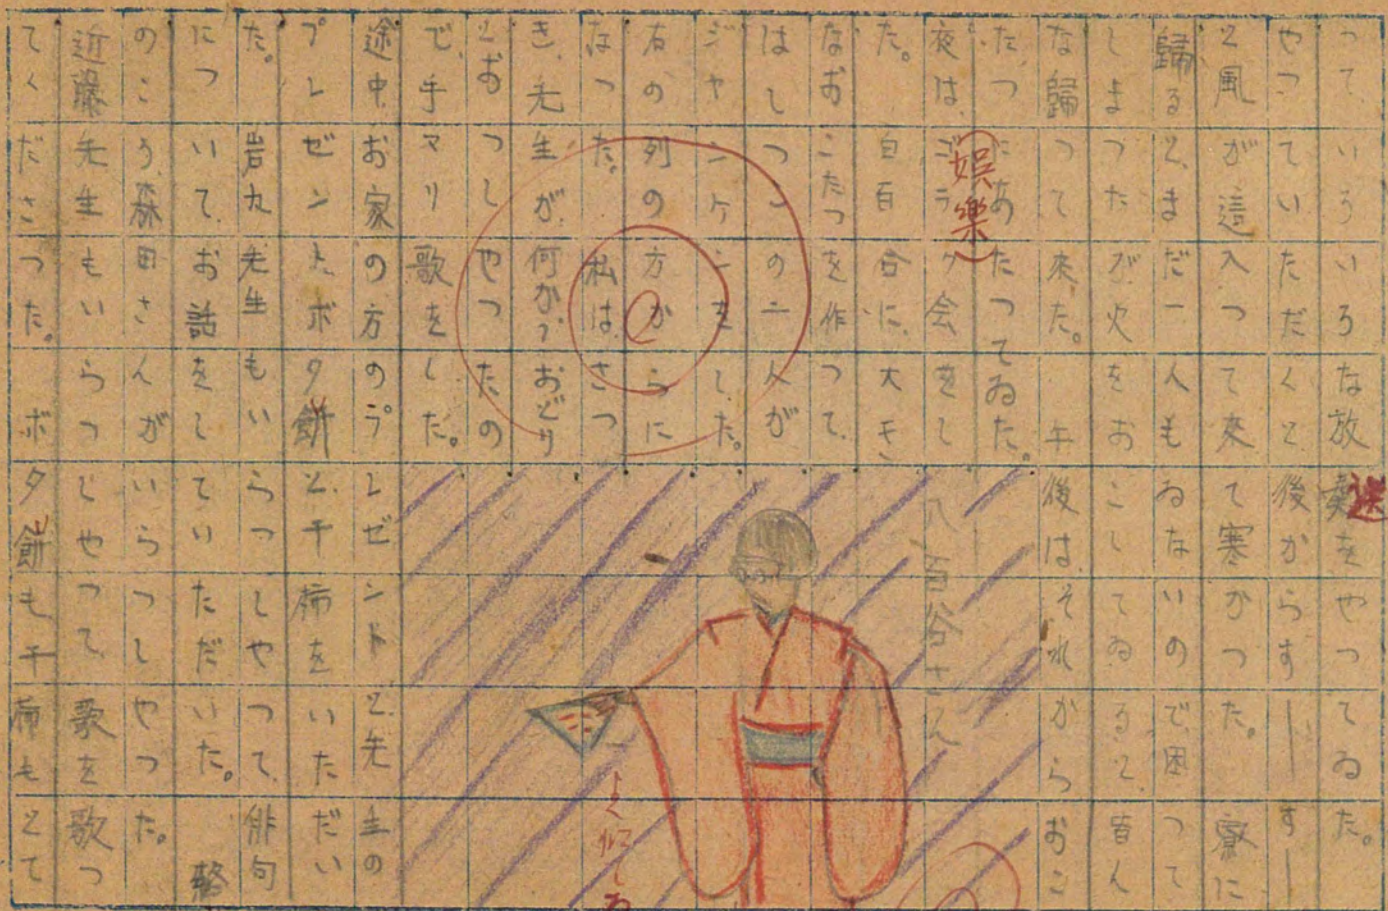 つて、いろいろな放送をやつてゐた。
やつていただくと後からすーすー
と風が這入つて来て寒かつた。寮に
歸ると、まだ一人もゐないので困つて
しまつたが火をおこしてゐると、皆ん
な歸つて来た。午後は、それからおこ
たつにあたつてゐた。
(娯樂)
夜は、ゴラク会をし
た。白百合に、大き
なおこたつを作つて、
はしつこの二人が
ジャンケンをした。
右の列の方からに
なつた。私は、さつ
き、先生が、何か、おどり
とおつしやつたの
で、手マリ歌をした。
八百谷さん
途中、お家の方のプレゼントと、先生の
プレゼント、ボタ餅と、干柿をいただい
た。岩丸先生もいらつしやつて、俳句
について、お話をしていただいた。終
のころ、森田さんがいらつしやつた。
近藤先生もいらつしやつて、歌を歌つ
てくださつた。ボタ餅も干柿もとて